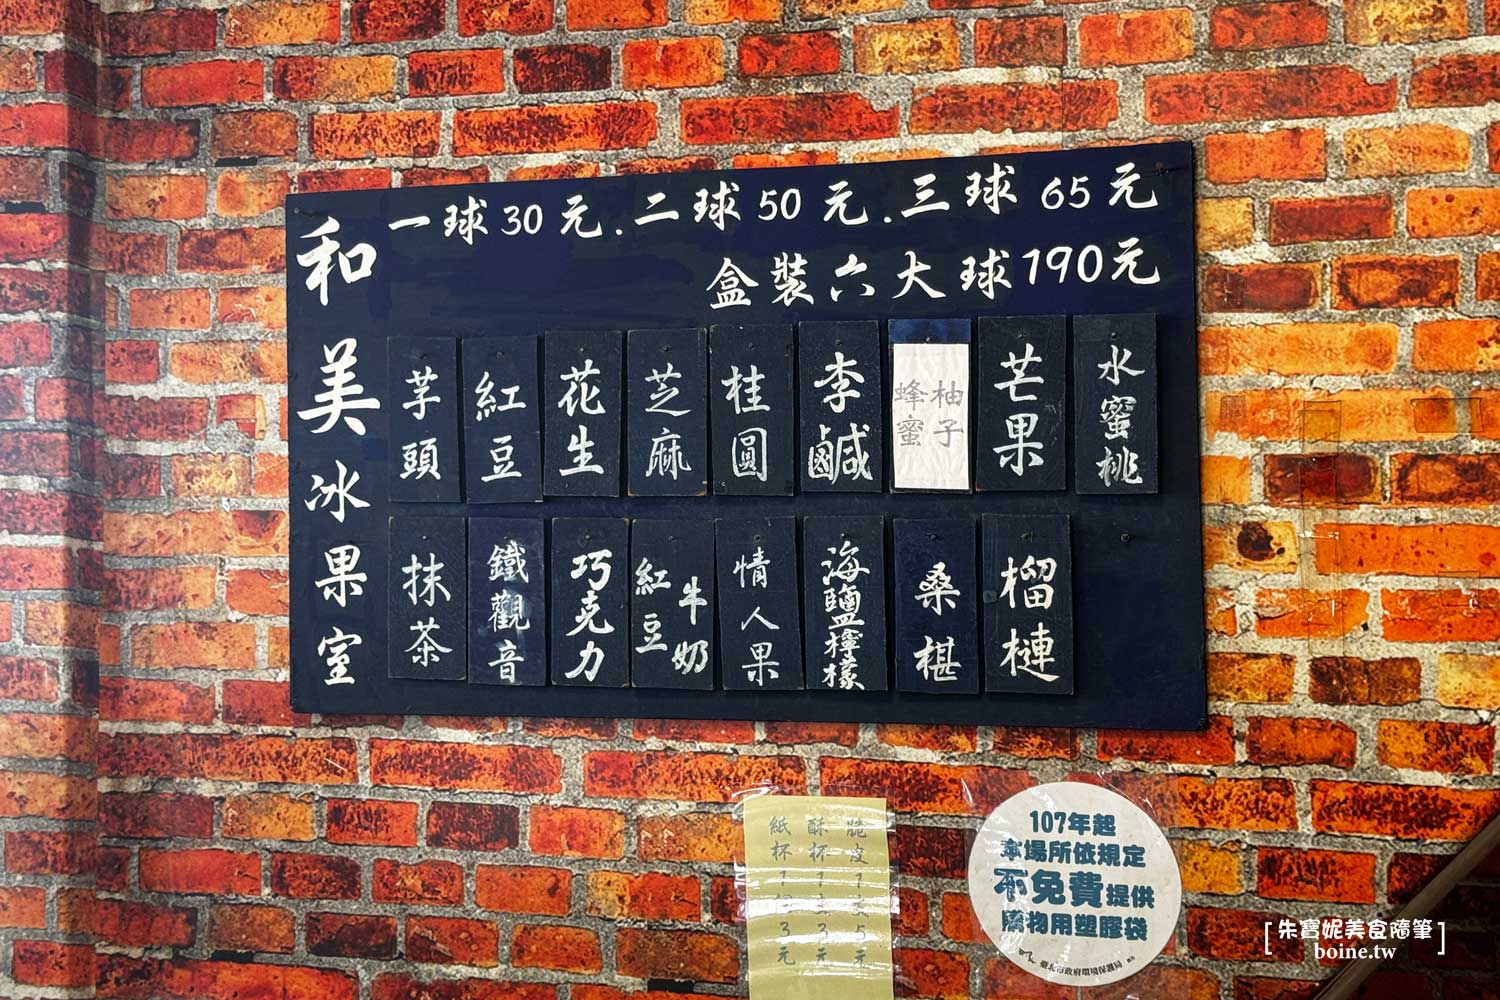 和美冰果室
一球30元.二球50元.三球65元
盒裝六大球190元
芋頭
紅豆
花生
芝麻
桂圓
李鹹
蜂蜜柚子
芒果
水蜜桃
抹茶
鐵觀音
巧克力
紅豆牛奶
情人果
海鹽檸檬
桑椹
榴槤
脆皮1支5元
酥杯1支3元
紙杯1個3元
107年起
本場所依規定
不免費提供
購物用塑膠袋
臺北市政府環境保護局
[朱寶妮美食隨筆]
boine.tw